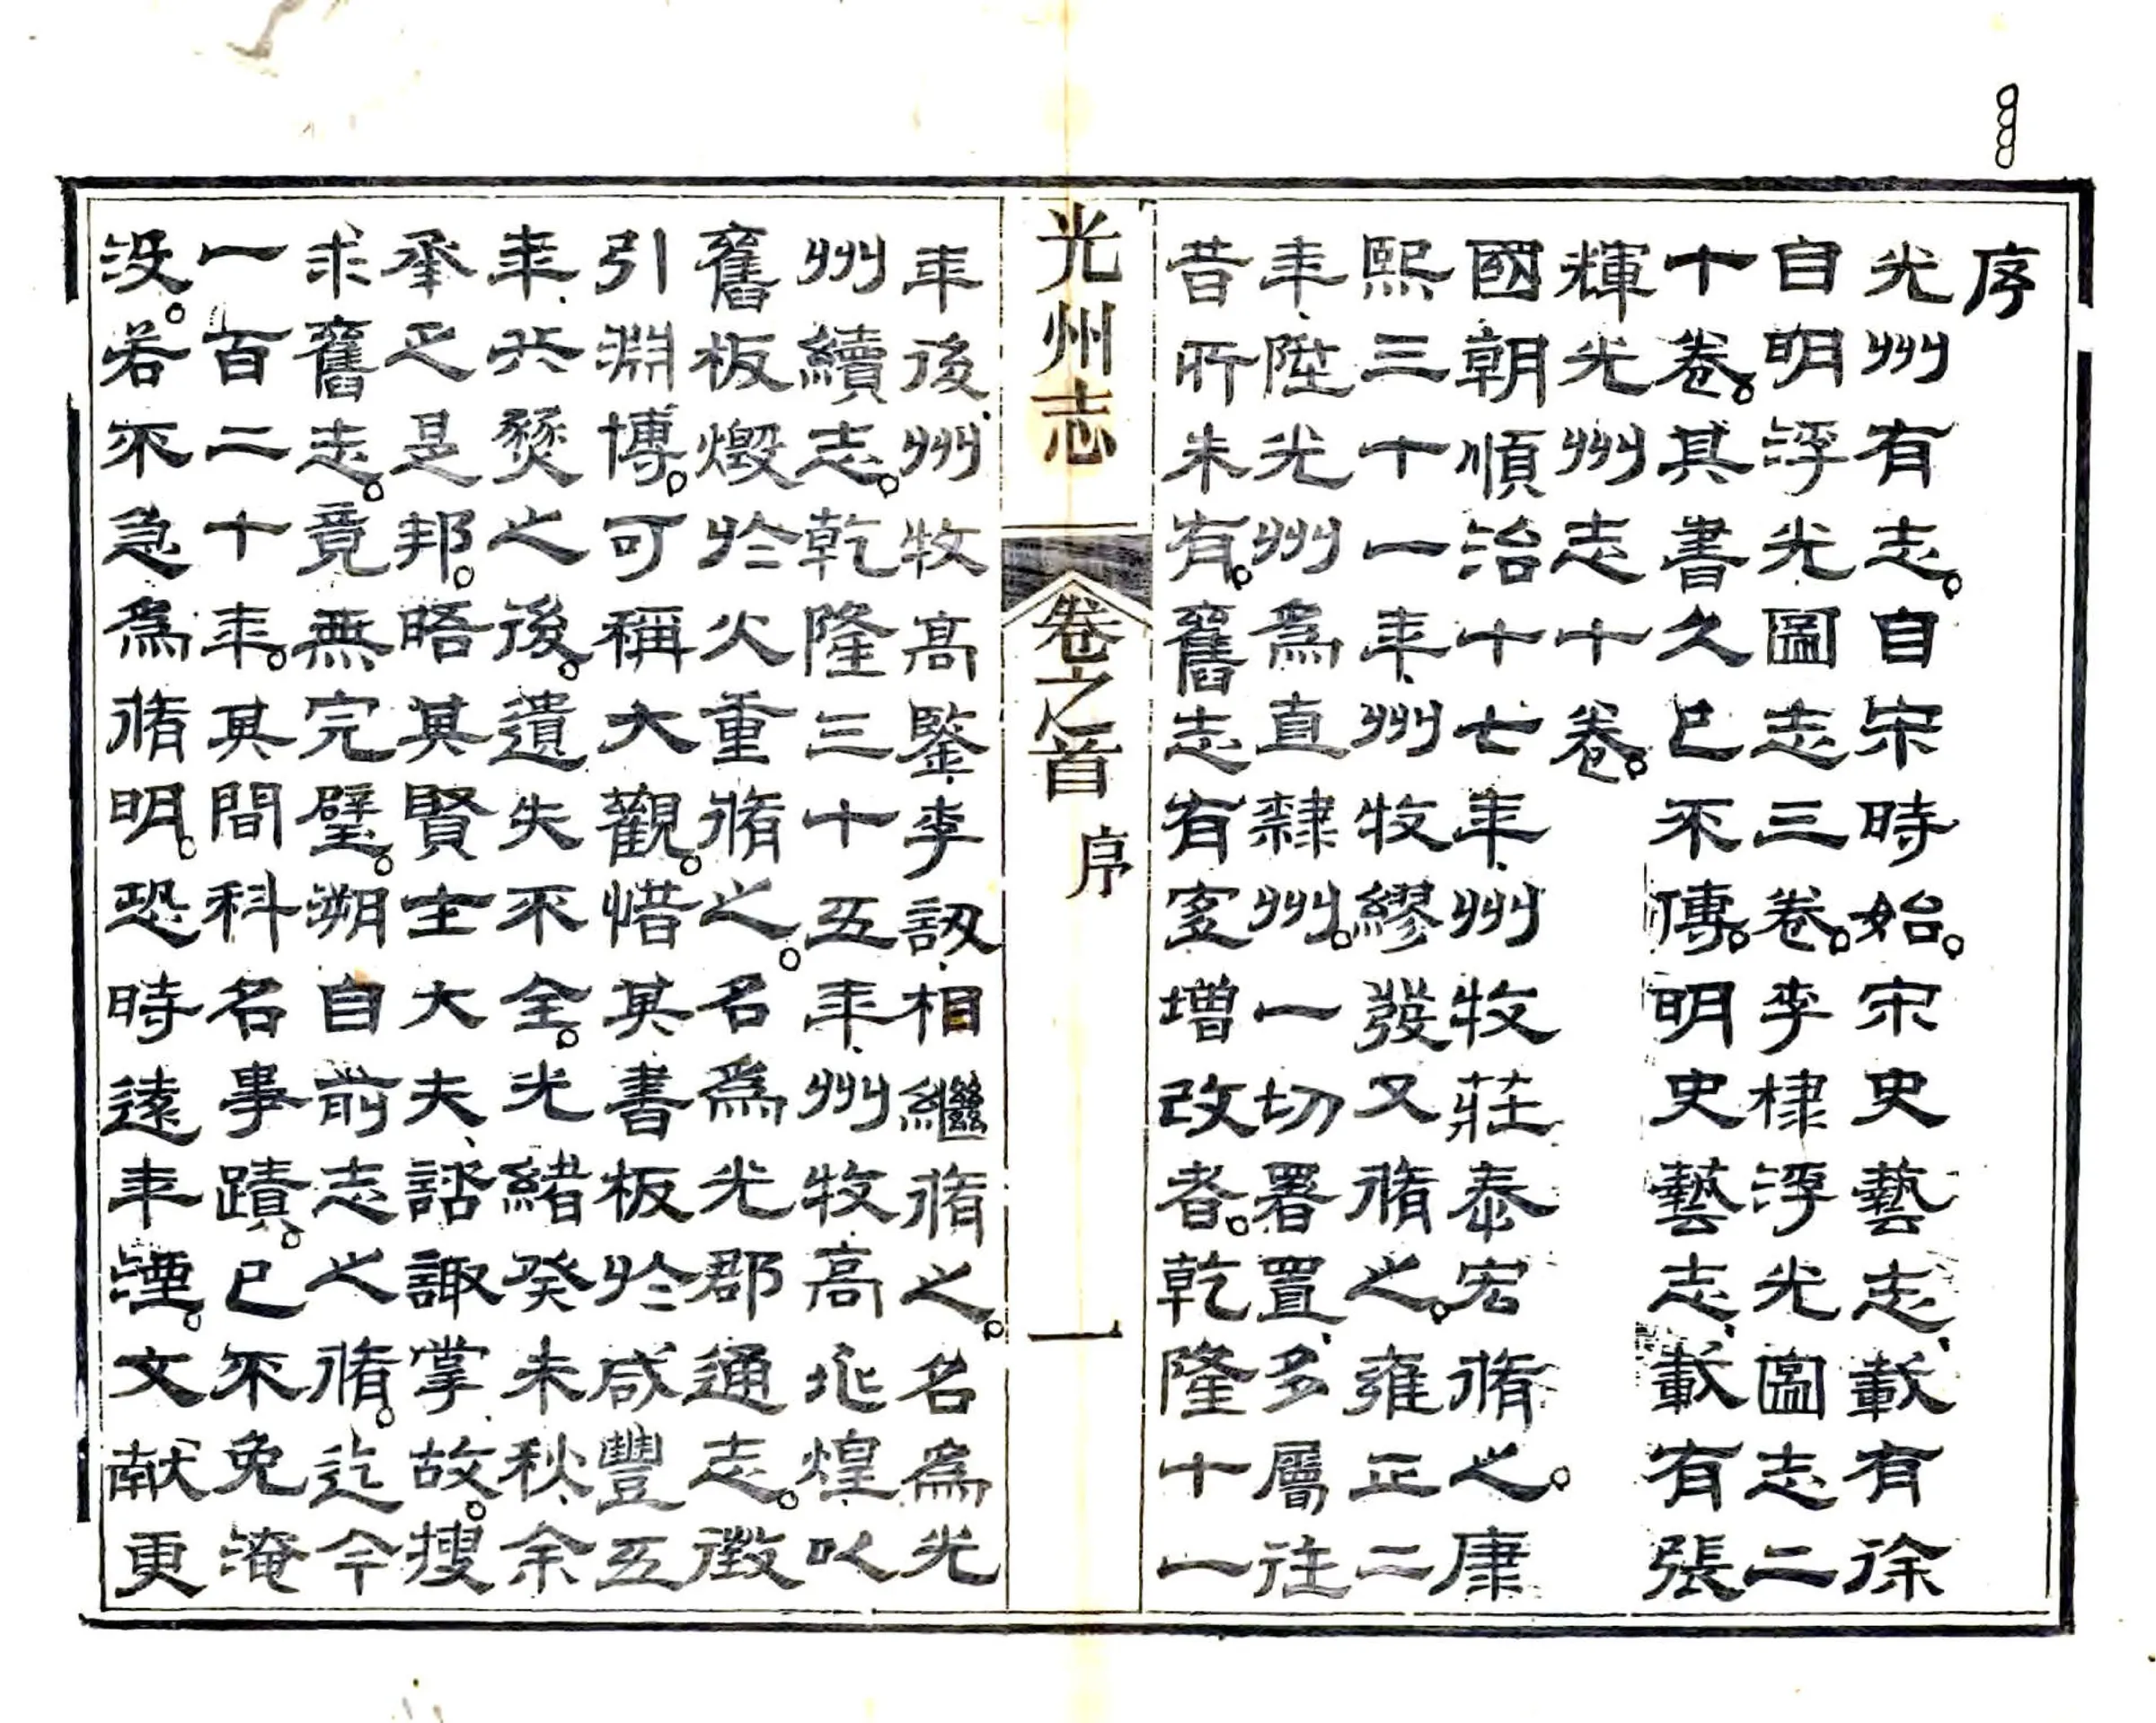 序
光州有志。自宋時始。宋史藝志、載有徐
自明浮光圖志三卷。李棣浮光圖志二
十卷。其書久已不傳。明史藝志、載有張
輝光州志十卷。
國朝順治十七年、州牧莊泰宏脩之。康
熙三十一年、州牧繆發又脩之。雍正二
年、陞光州爲直隸州。一切署置、多屬往
昔所未有。舊志有宜增改者。乾隆十一
光州志 卷之首 序 一
年後、州牧高鑒、李訒、相繼脩之。名爲光
州續志。乾隆三十五年、州牧高兆煌、以
舊板燬於火重脩之。名爲光郡通志。徵
引淵博。可稱大觀。惜其書板於咸豐五
年、兵燹之後。遺失不全。光緒癸未秋、余
承乏是邦。晤其賢士大夫、諮諏掌故。搜
求舊志。竟無完璧。溯自前志之脩。迄今
一百二十年。其間科名事蹟。已不免淹
没。若不急爲脩明。恐時遠年湮。文献更